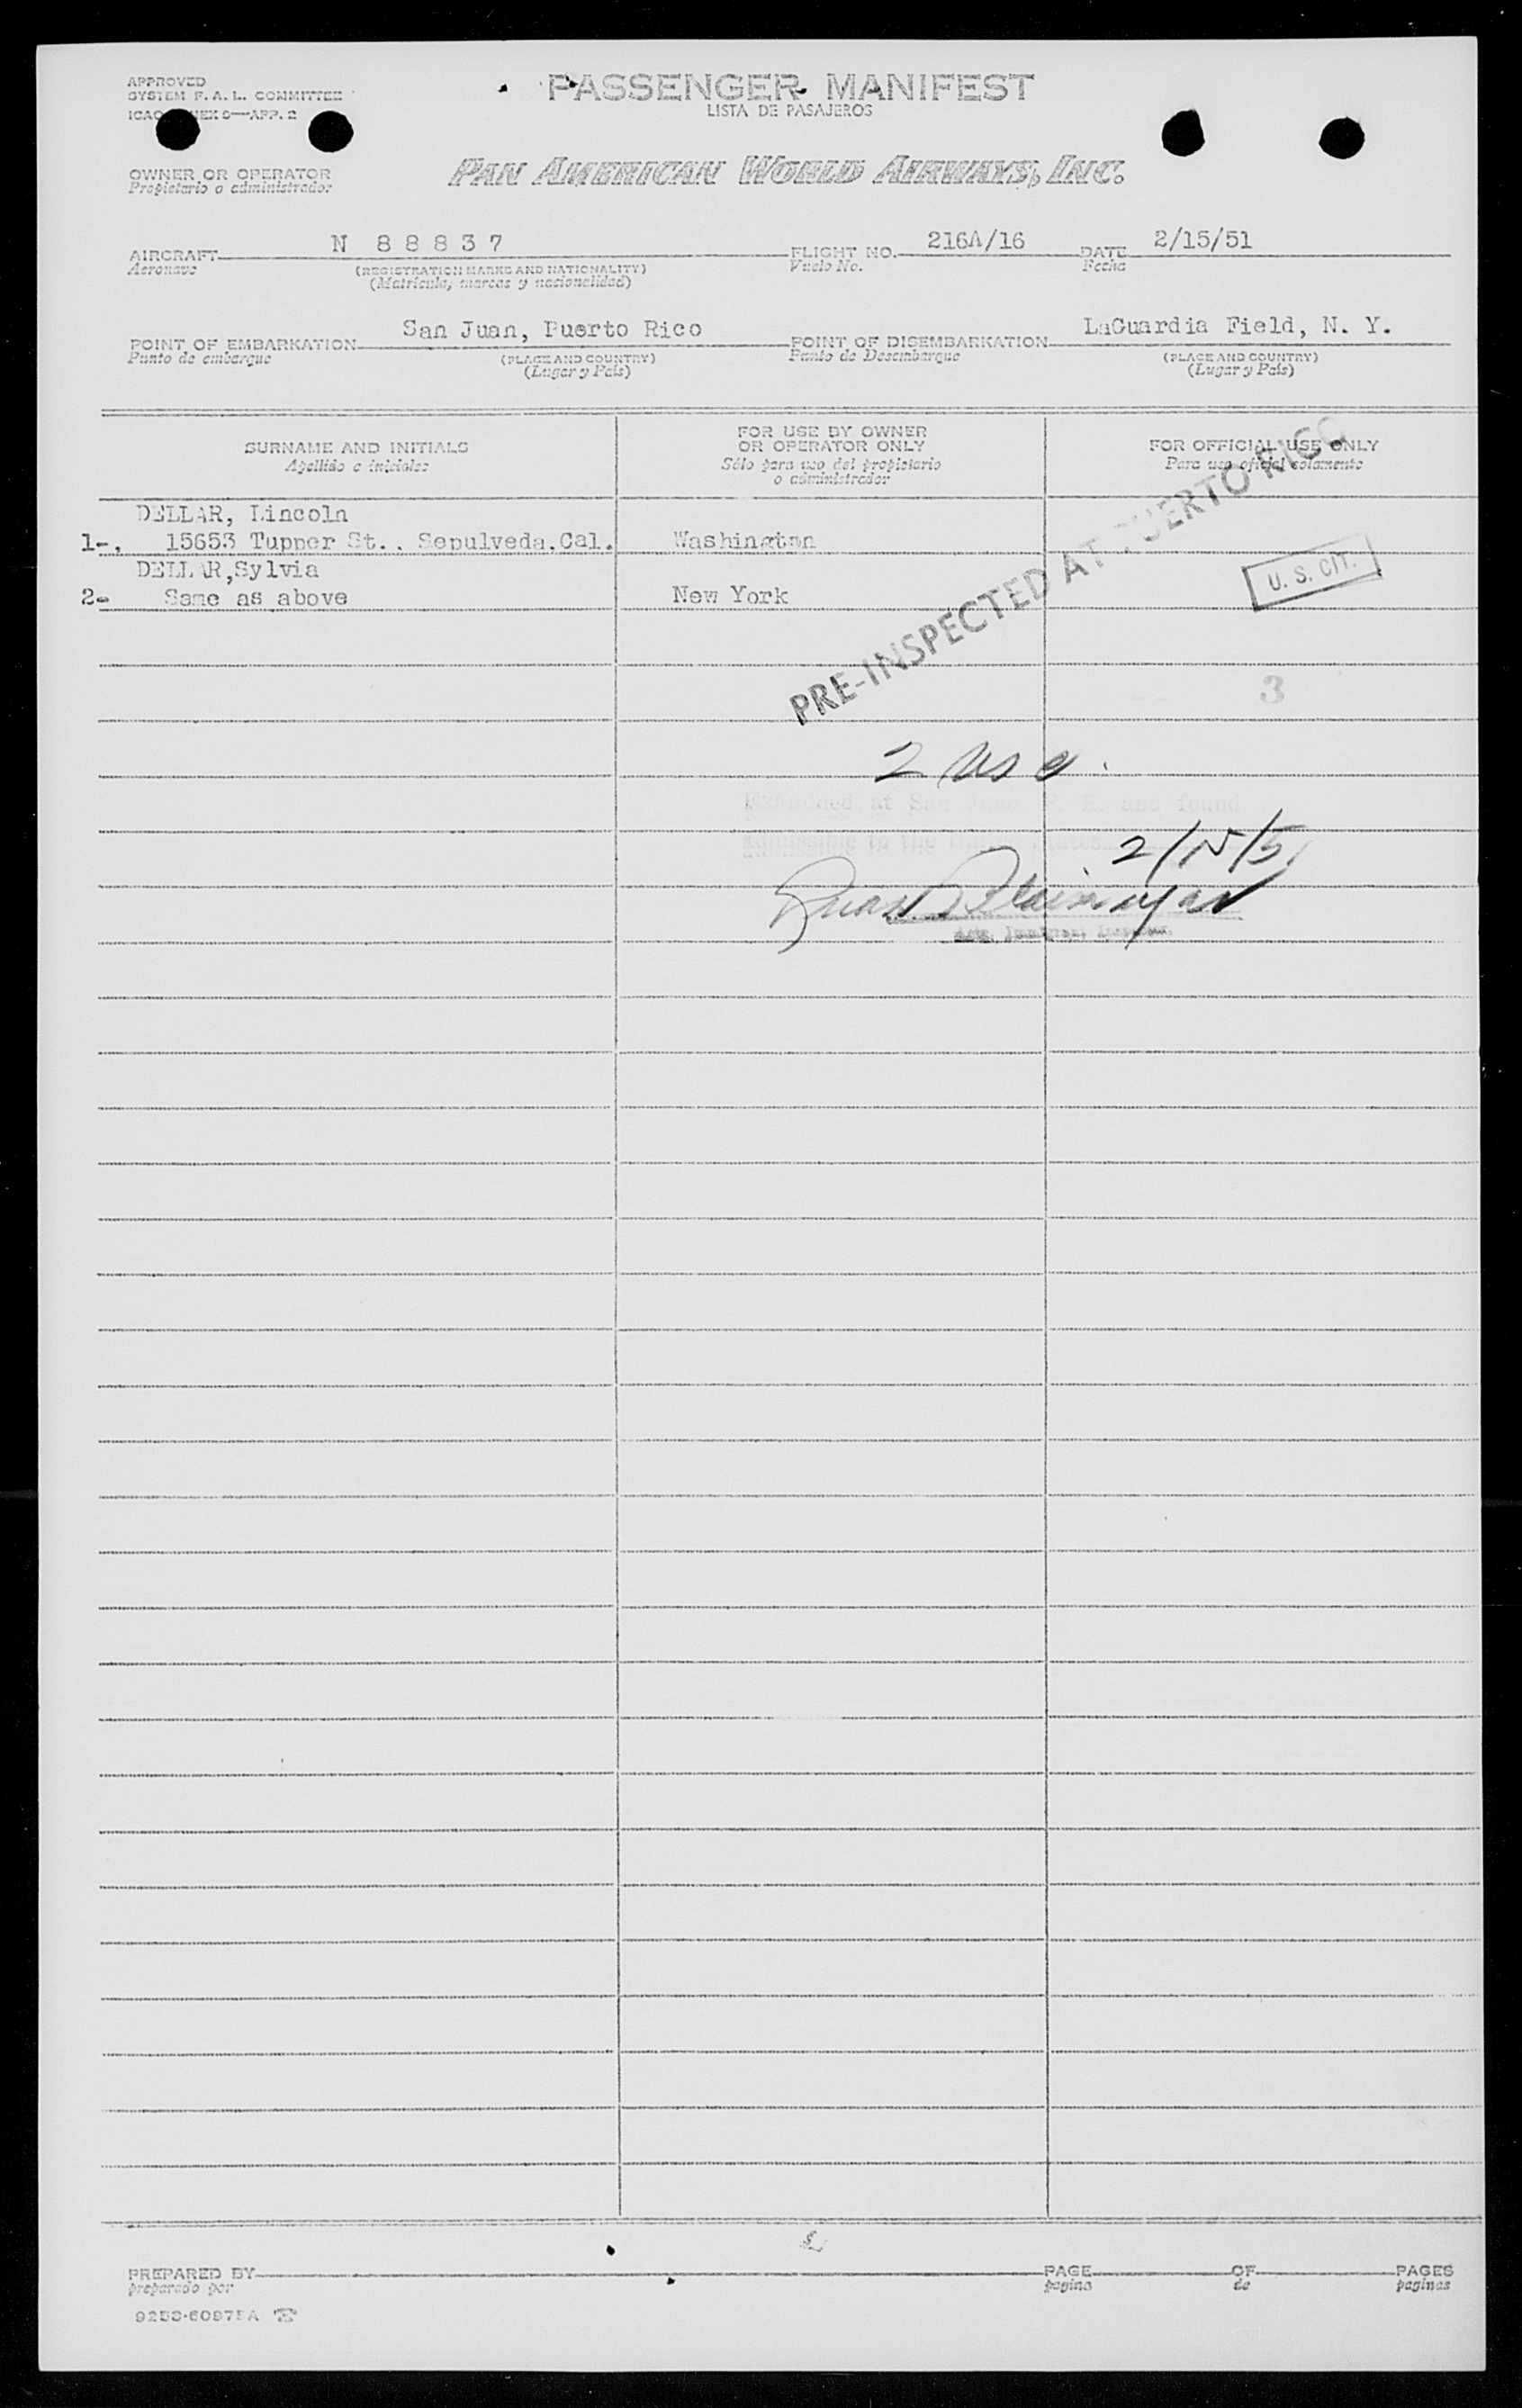 APPROVED
SYSTEM F. A. L. COMMITTEE
PASSENGER MANIFEST
LISTA DE PASAJEROS
OWNER OR OPERATOR
Propietario o administrador
PAN AMERICAN WORLD AIRWAYS, INC.
AIRCRAFT N 88837 FLIGHT NO. 216A/16 DATE 2/15/51
Aeronave (REGISTRATION MARKS AND NATIONALITY) Vuelo No. Fecha
(Matricula, marcas y nacionalidad)
POINT OF EMBARKATION San Juan, Puerto Rico POINT OF DISEMBARKATION LaGuardia Field, N. Y.
Punto de embarque (PLACE AND COUNTRY) Punto de Desembarque (PLACE AND COUNTRY)
(Lugar y País) (Lugar y País)
SURNAME AND INITIALS
Apellido e iniciales
FOR USE BY OWNER
OR OPERATOR ONLY
Sólo para uso del propietario
o administrador
FOR OFFICIAL USE ONLY
Para uso oficial solamente
DELLAR, Lincoln
1-, 15653 Tupper St., Sepulveda,Cal. Washington
DELLAR,Sylvia
2- Same as above New York
PRE-INSPECTED AT PUERTO RICO
U. S. CIT.
3
2 usc.
2/15/51
PREPARED BY PAGE OF PAGES
preparado por pagina de paginas